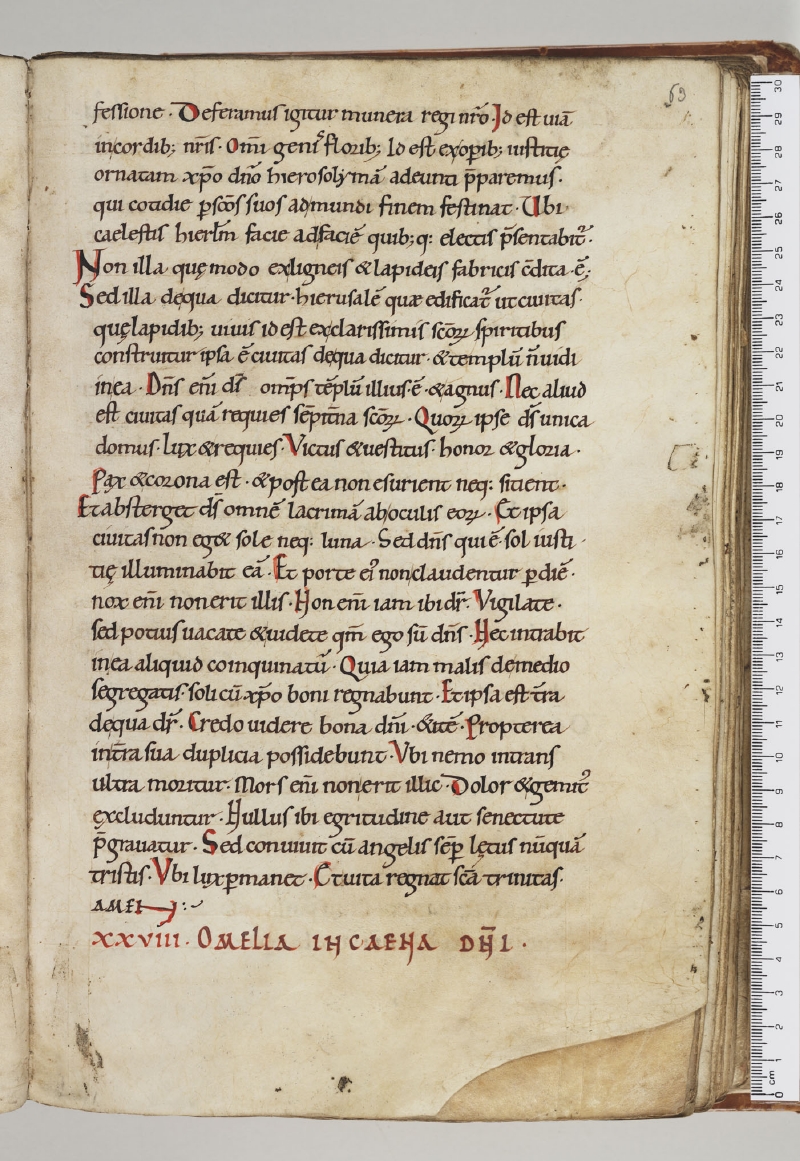 63
fessione · Deferamus igitur munera regi nr̄o · Id est uiam̄
incordib; nr̄is · Om̄i geni᷒ florib; Id est exoꝑib; iustitię
ornatam xp̄o dn̄o hierosolymā adeunti p̄paremus ·
qui cotidie ꝑ sc̄os suos admundi finem festinat · Ubi
caelestis hierl̄m facie adfaciē quib;q: electis p̄sentabit᷒ ·
Non illa quę modo exligneis & lapideis fabricis c̄dita · ē ;
Sed illa dequa dicitur · hierusalē quæ edificat᷒ ut ciuitas ·
quę lapidib; uiuis id est exclarissimis sc̄oꝝ spiritibus
construitur ipsa ē ciuitas dequa dicitur · & templū n̄ uidi
inea · Dn̄s eni̅ ds̄ omp̄s tēplū illius · ē · & agnus · Nec aliud
est ciuitas quā requies sēpit̄na sc̄oꝝ · Quoꝝ ipse ds̄ unica
domus · lux & requies · Victus & uestitus · honor & gloria ·
Pax & corona est · & post ea non esurient neq: sitient ·
Et absterget ds̄ omnē lacrimā ab oculis eoꝝ · Et ipsa
ciuitas non eg& sole neq: luna · Sed dn̄s qui ē · sol iusti
tię illuminabit eā · Et porte ei᷒ non claudentur ꝑ diē ·
nox eni̅ non erit illis · Non eni̅ iam ibi dr̄ · Vigilate ·
sed potius uacate & uidete qm̄ ego sū dn̄s · Nec intrabit
inea aliquid coinquinatū · Quia iam malis demedio
segregatis · soli cū xp̄o boni regnabunt · Et ipsa est t̄ra
dequa dr̄ · Credo uidere bona dn̄i · & itē · Propterea
int̄ra sua duplicia possidebunt · Vbi nemo intrans
ultra moritur · Mors eni̅ non erit illic · Dolor & gemit᷒
excluduntur · Nullus ibi egritudine aut senectute
p̄grauatur · Sed conuiuit cū angelis sēꝑ lętus nūquā
tristis · Vbi lux ꝑmanet · Et uita regnat sc̄a trinitas ·
AMEN
XXVIII · OMELIA IN CAENA DN̄I ·